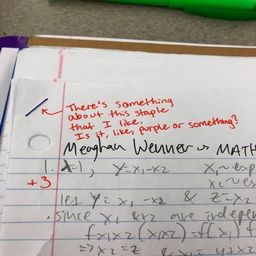 There's something
about this staple
that I like.
Is it, like, purple or something?
Meaghan Wenner MATH
1. λ=1, Y=X₁-X₂ X₁~exp
+3 X₂~ex
let Y = X₁ - X₂ & Z=X₂
. since X₁ & X₂ are indepen
fx₁x₂(x₁x₂)=f(x₁)f
=> X₂=Z &